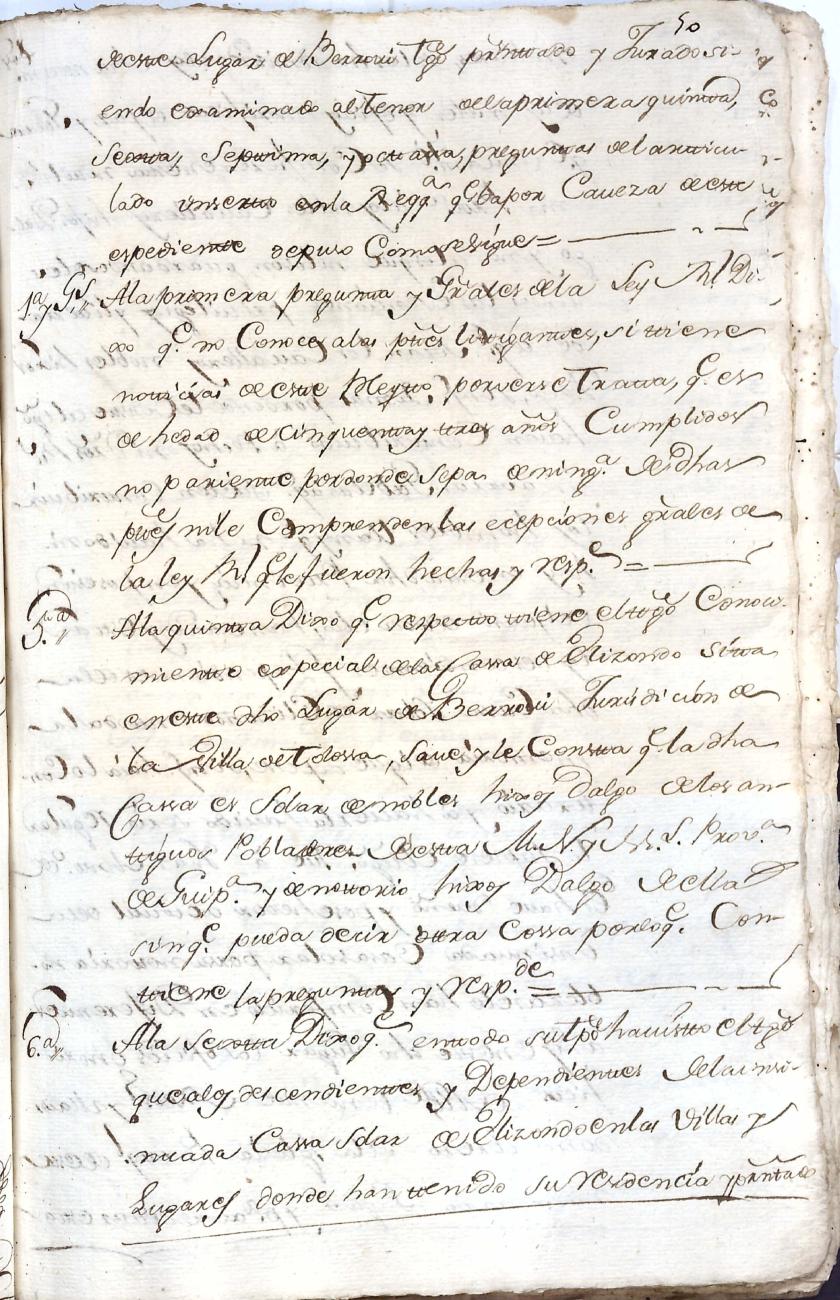 50
de este Lugar de Berrovi tgo presentado y Jurado si-
endo examinado al tenor de la primera quinta,
Sexta, Septima, y octava, preguntas del articu-
lado inserto en la Reqq.a q.e ba por Caveza de este
espediente depuso Como se sigue =
1.a y G.s Ala primera pregunta y Grales de la Ley Rl Di-
xo q.e no Conoce a las ptes litigantes, si tiene
noticias de este Pleyto, por verse Trata, q.e es
de hedad de cinquenta y tres años Cumplidos
no pariente por donde sepa de ning.a de dhas
ptes ni le Comprenden las ecepciones grales de
la ley Rl q.e le fueron hechas y resp.de =
5.ta Ala quinta Dixo q.e respecto tiene el tgo Conoci-
miento especial de la Cassa de Elizondo sitta
en este dho Lugar de Berrovi Jurisdición de
la Villa de Tolossa, save y le Consta q.e la dha
Cassa es Solar de nobles hixos Dalgo de los an-
tiguos Pobladores de esta M. N. y M. L. Prov.a
de Guip.a y de notorio hixos Dalgo de ella
sin q.e pueda decir otra Cossa por lo q.e Con-
tiene la pregunta y resp.de =
6.a Ala Sexta Dixo q.e en todo su tpo ha visto el tgo
que a los descendientes y Dependientes de la insi-
nuada Cassa Solar de Elizondo en las Villas y
Lugares donde han tenido su residencia y